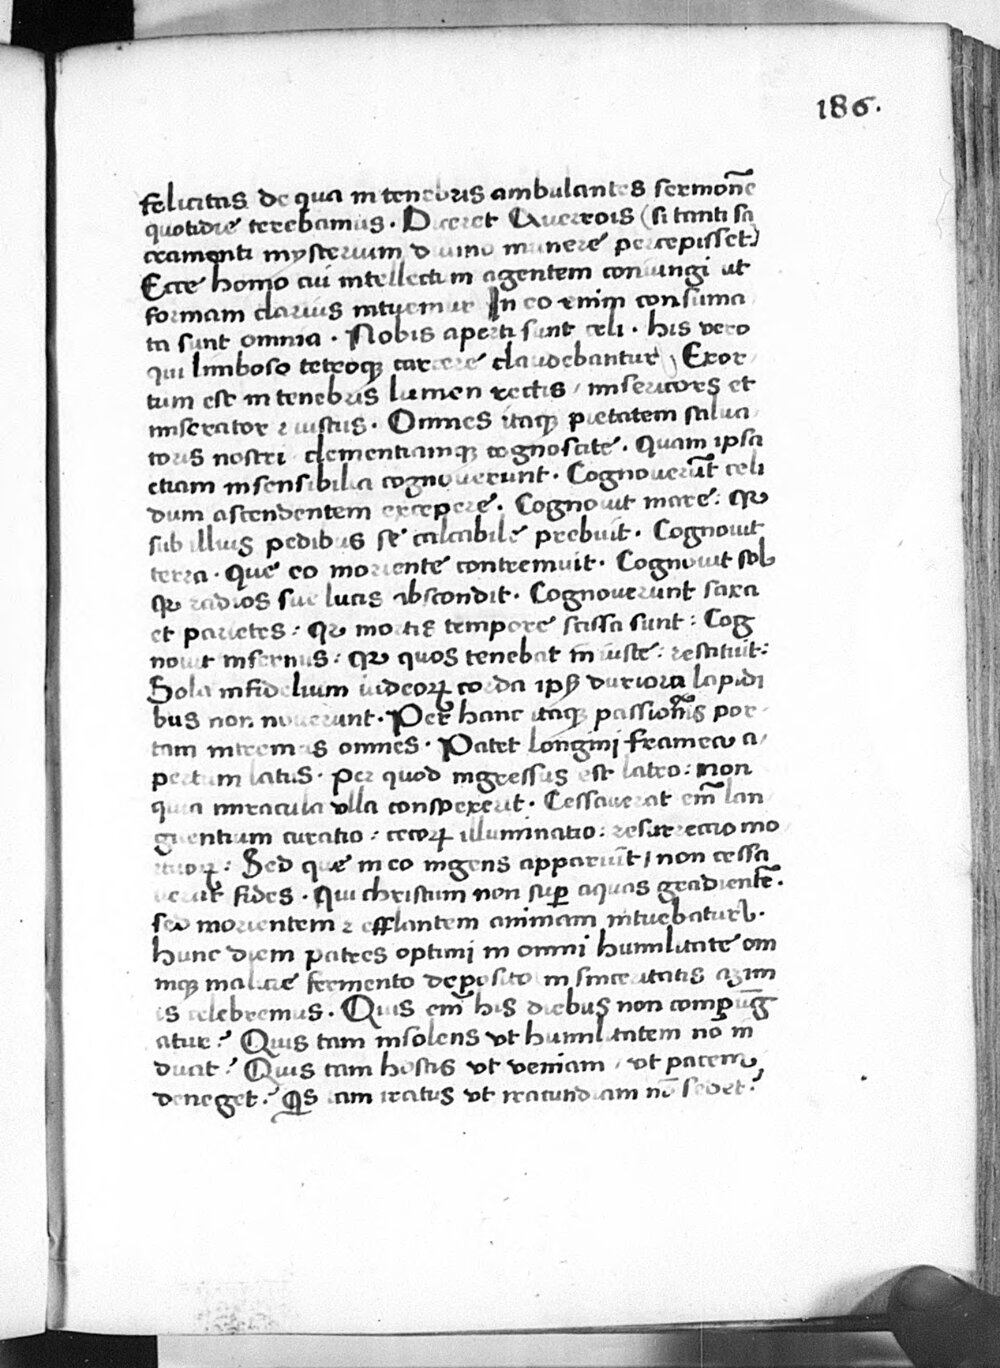 186.
felicitas de qua in tenebris ambulantes sermonē
quotidie terebamus. Diceret Auerrois (si tanti sa
cramenti mysterium diuino munere percepisset)
Ecce homo cui intellectum agentem coniungi ut
formam clarius intuemur In eo enim consuma
ta sunt omnia. Nobis aperti sunt celi. his vero
qui limboso tetroqꝫ carcere claudebantur, Exor
tum est in tenebris lumen rectis, misericors et
miserator ⁊ iustus. Omnes itaqꝫ pietatem salua
toris nostri clementiamqꝫ cognoscite. Quam ipsa
etiam insensibilia cognouerunt. Cognouerūt celi
dum ascendentem excepere. Cognouit mare: qꝛ
sub illius pedibus se calcabile prebuit. Cognouit
terra. Que eo moriente contremuit. Cognouit sol
qꝛ radios sue lucis abscondit. Cognouerunt saxa
et parietes: qꝛ mortis tempore scissa sunt: Cog
nouit infernus: qꝛ quos tenebat iniuste: restituit:
Sola infidelium iudeoꝝ corda ipsꝭ duriora lapidi
bus non nouerunt. Per hanc itaqꝫ passionis por
tam intremus omnes. Patet Longini framea a
pertum latus. Per quod ingressus est latro: non
quia miracula vlla conspexerit. Cessauerat em̄ lan
guentium curatio: cecoꝝ illuminatio: resurrectio mo
rtuoꝝ: Sed que in eo ingens apparuit, non cessa
uerat fides. Qui christum non suꝑ aquas gradientē.
sed morientem ⁊ efflantem animam intuebatur.
Hunc diem patres optimi in omni humilitate om
niqꝫ malicie fermento deposito in sinceritatis azim
is celebremus. Quis em̄ his diebus non compūg
atur? Quis tam insolens vt humilitatem nō in
duat? Quis tam hostis vt veniam, vt pacem
deneget? Qis tam iratus vt iracundiam nō sedet?